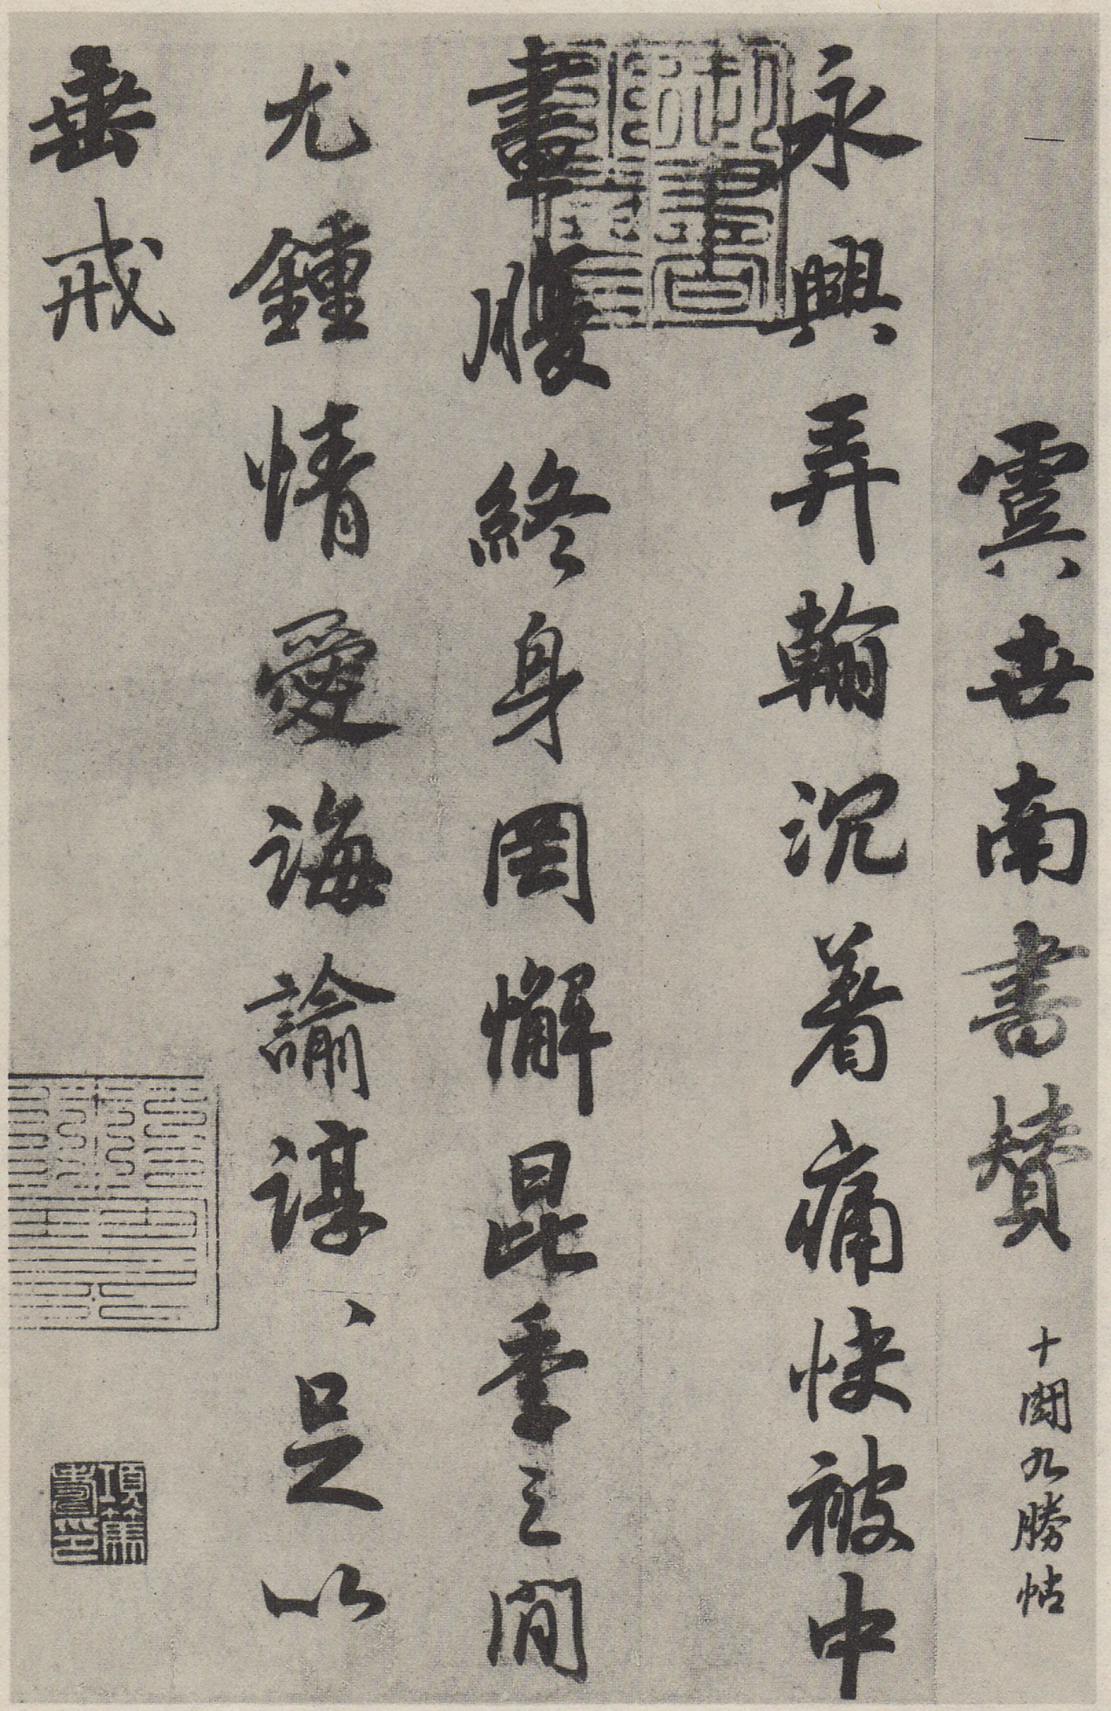 虞世南書贊 十鬪九勝帖
永興弄翰沉著痛快被中
畫腹終身罔懈昆季之間
尤鍾情愛誨諭諄、足以
垂戒